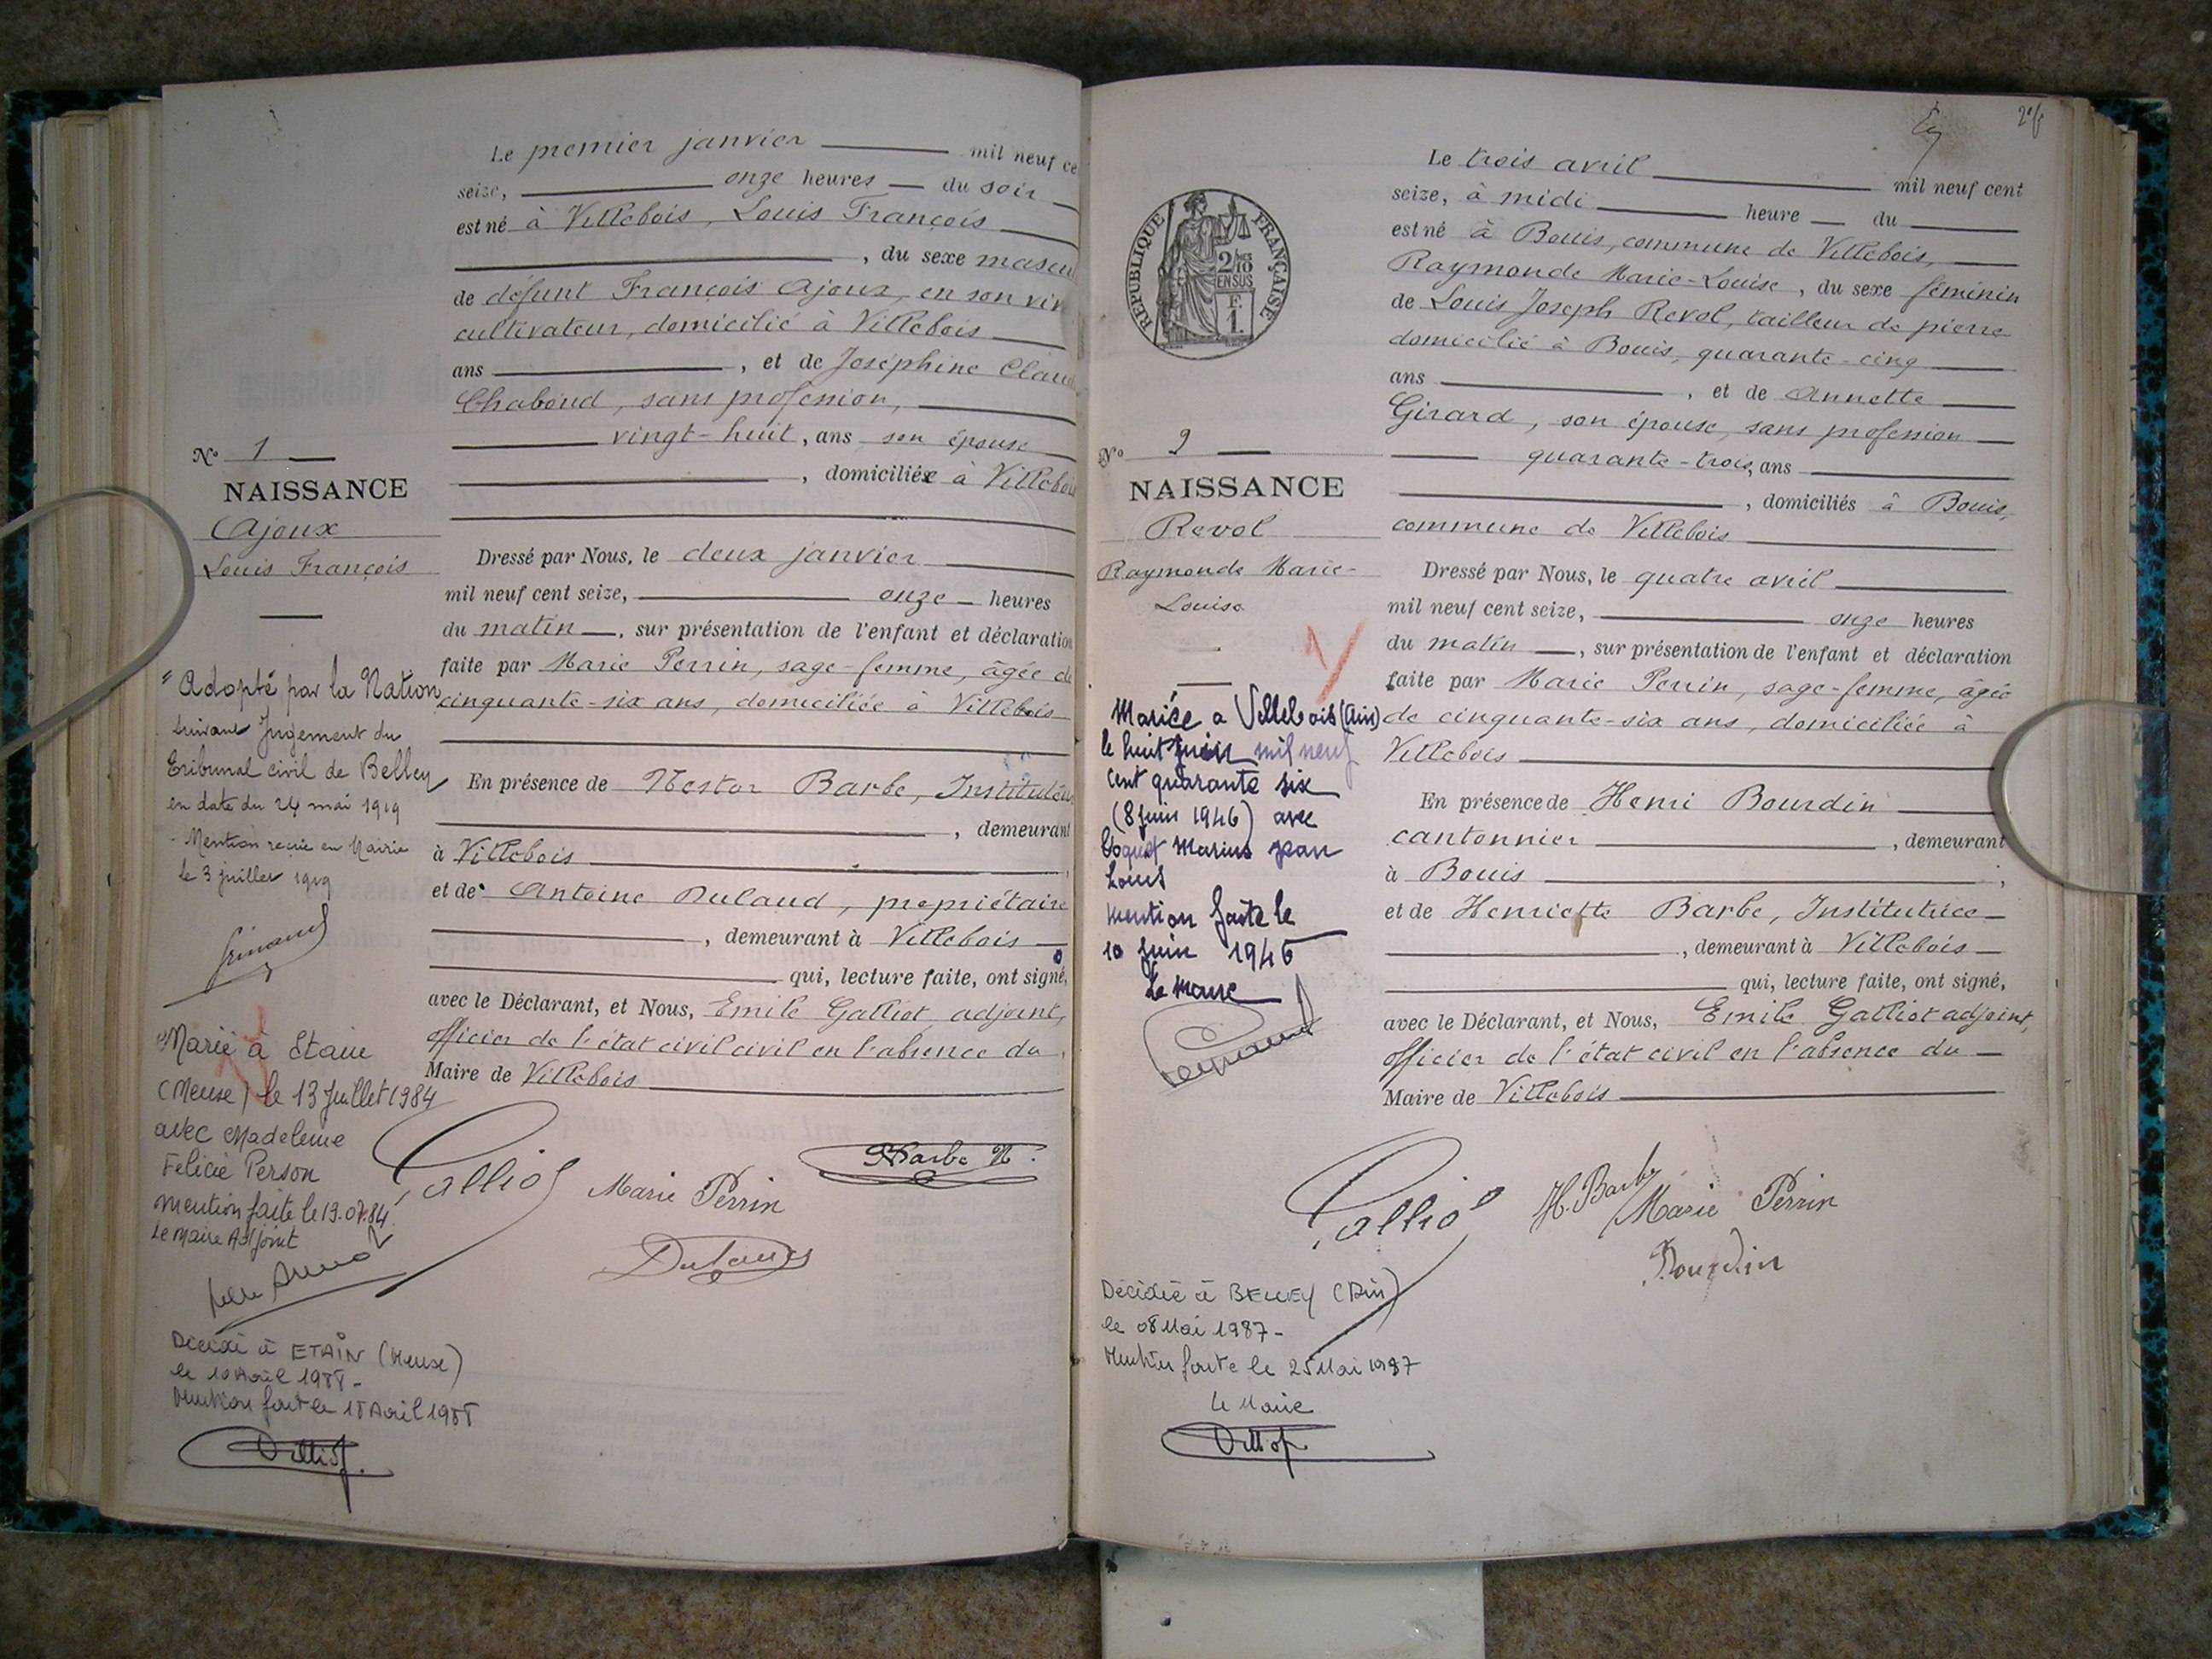 Le premier janvier mil neuf ce
seize, onze heures du soir
est né à Villebois, Louis François
, du sexe mascu
de défunt François Ajoux, en son viv
cultivateur, domicilié à Villebois
ans , et de Joséphine Clau
Chabond, sans profession,
vingt-huit, ans son épouse
, domiciliée à Villebois
Nº 1
NAISSANCE
Ajoux
Louis François
Dressé par Nous, le deux janvier
mil neuf cent seize, onze heures
du matin , sur présentation de l'enfant et déclaration
faite par Marie Perrin, sage-femme, âgée de
cinquante-six ans, domiciliée à Villebois
En présence de Nestor Barbe, Instituteur
, demeurant
à Villebois
et de Antoine Dulaud, propriétaire
, demeurant à Villebois
qui, lecture faite, ont signé,
avec le Déclarant, et Nous, Emile Galliot, adjoint,
officier de l'état civil civil en l'absence du
Maire de Villebois
Galliot Marie Perrin Barbe N.
Dulaud
"Adopté par la Nation
suivant Jugement du
Tribunal civil de Belley
en date du 24 mai 1919
- Mention reçue en Mairie
le 3 juillet 1919
Marié à Etain
(Meuse) le 13 Juillet 1984
avec Madeleine
Felicie Person
mention faite le 19.07.84.
Le Maire Adjoint
Décédé à ETAIN (Meuse)
le 10 Avril 1988 -
Mention faite le 18 Avril 1988
2e f
Le trois avril mil neuf cent
seize, à midi heure du
est né à Bouis, commune de Villebois,
Raymonde Marie-Louise, du sexe féminin
de Louis Joseph Revol, tailleur de pierre
domicilié à Bouis, quarante-cinq
ans , et de Annette
Girard, son épouse, sans profession
quarante-trois, ans
, domiciliés à Bouis,
commune de Villebois
RÉPUBLIQUE FRANÇAISE
2/10
EN SUS
F.
1.
Nº 2
NAISSANCE
Revol
Raymonde Marie-
Louise
Dressé par Nous, le quatre avril
mil neuf cent seize, onze heures
du matin , sur présentation de l'enfant et déclaration
faite par Marie Perrin, sage-femme, âgée
de cinquante-six ans, domiciliée à
Villebois
En présence de Henri Bourdin
cantonnier , demeurant
à Bouis ;
et de Henriette Barbe, Institutrice
, demeurant à Villebois
qui, lecture faite, ont signé,
avec le Déclarant, et Nous, Emile Galliot adjoint,
officier de l'état civil en l'absence du
Maire de Villebois
Galliot H. Barbe Marie Perrin
Bourdin
Mariée a Villebois (Ain)
le huit juin mil neuf
cent quarante six
(8 juin 1946) avec
Marius Jean
Louis
mention faite le
10 juin 1946
Le Maire
Décédée à BELLEY (Ain)
le 08 Mai 1987 -
Mention faite le 25 Mai 1987
Le Maire